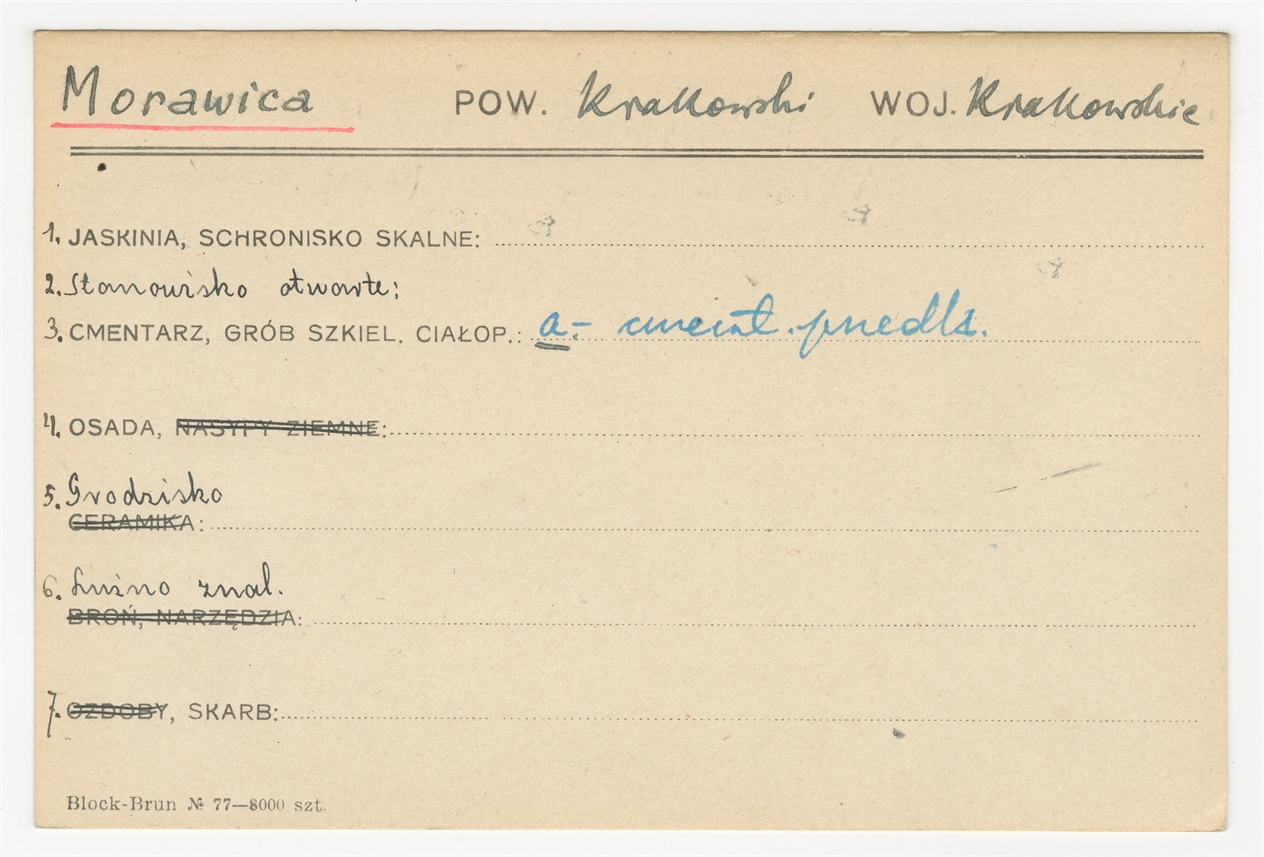 Morawica POW. Krakowski WOJ. Krakowskie
1. JASKINIA, SCHRONISKO SKALNE:
2. Stanowisko otwarte:
3. CMENTARZ, GRÓB SZKIEL. CIAŁOP.: a.-
4. OSADA, NASYPY ZIEMNE:
5. Grodzisko
CERAMIKA:
6. Luźno znal.
BROŃ, NARZĘDZIA:
7. OZDOBY, SKARB:
Block-Brun № 77—8000 szt.